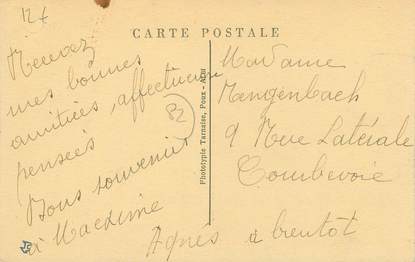 12 f
CARTE POSTALE
Recevez
mes bonnes
amitiés, affectueuses
pensées
Bons souvenirs
à Maxime
82
Phototypie Tarnaise, Poux - Albi
Madame
Mangenbach
9 Rue Latérale
Courbevoie
Agnès à bientôt